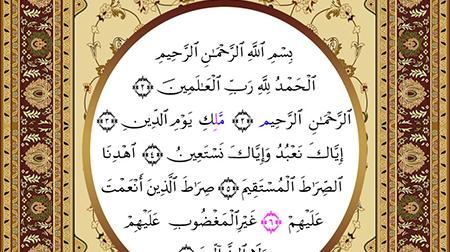 بِسْمِ ٱللَّهِ ٱلرَّحْمَٰنِ ٱلرَّحِيمِ
ٱلْحَمْدُ لِلَّهِ رَبِّ ٱلْعَٰلَمِينَ ﴿١﴾
ٱلرَّحْمَٰنِ ٱلرَّحِيمِ ﴿٢﴾ مَّلِكِ يَوْمِ ٱلدِّينِ ﴿٣﴾
إِيَّاكَ نَعْبُدُ وَإِيَّاكَ نَسْتَعِينُ ﴿٤﴾ ٱهْدِنَا
ٱلصِّرَٰطَ ٱلْمُسْتَقِيمَ ﴿٥﴾ صِرَٰطَ ٱلَّذِينَ أَنْعَمْتَ
عَلَيْهِمْ ﴿٦﴾ غَيْرِ ٱلْمَغْضُوبِ عَلَيْهِمْ